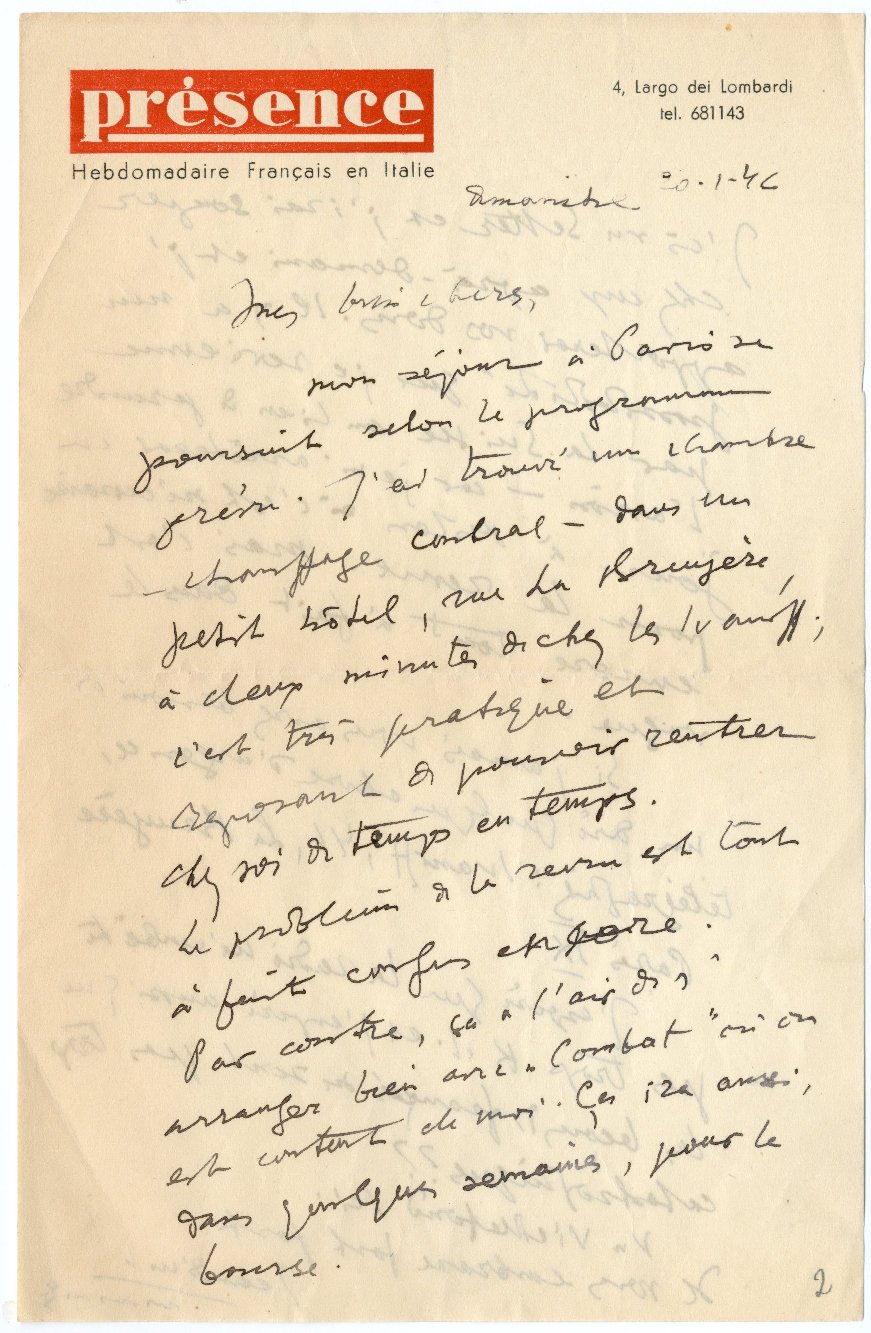 présence
Hebdomadaire Français en Italie
4, Largo dei Lombardi
tel. 681143
dimanche 20-1-46
Mes bien chers,
mon séjour à Paris se
poursuit selon le programme
prévu. J'ai trouvé une chambre
- chauffage central - dans un
petit hôtel, rue La Bruyère,
à deux minutes de chez les Ivanoff;
c'est très pratique et
reposant de pouvoir rentrer
chez soi de temps en temps.
Le problème de la revue est tout
à fait confus encore.
Par contre, ça a l'air de s'
arranger bien avec "Combat" où on
est content de moi. Ça ira aussi,
dans quelques semaines, pour la
bourse.
2